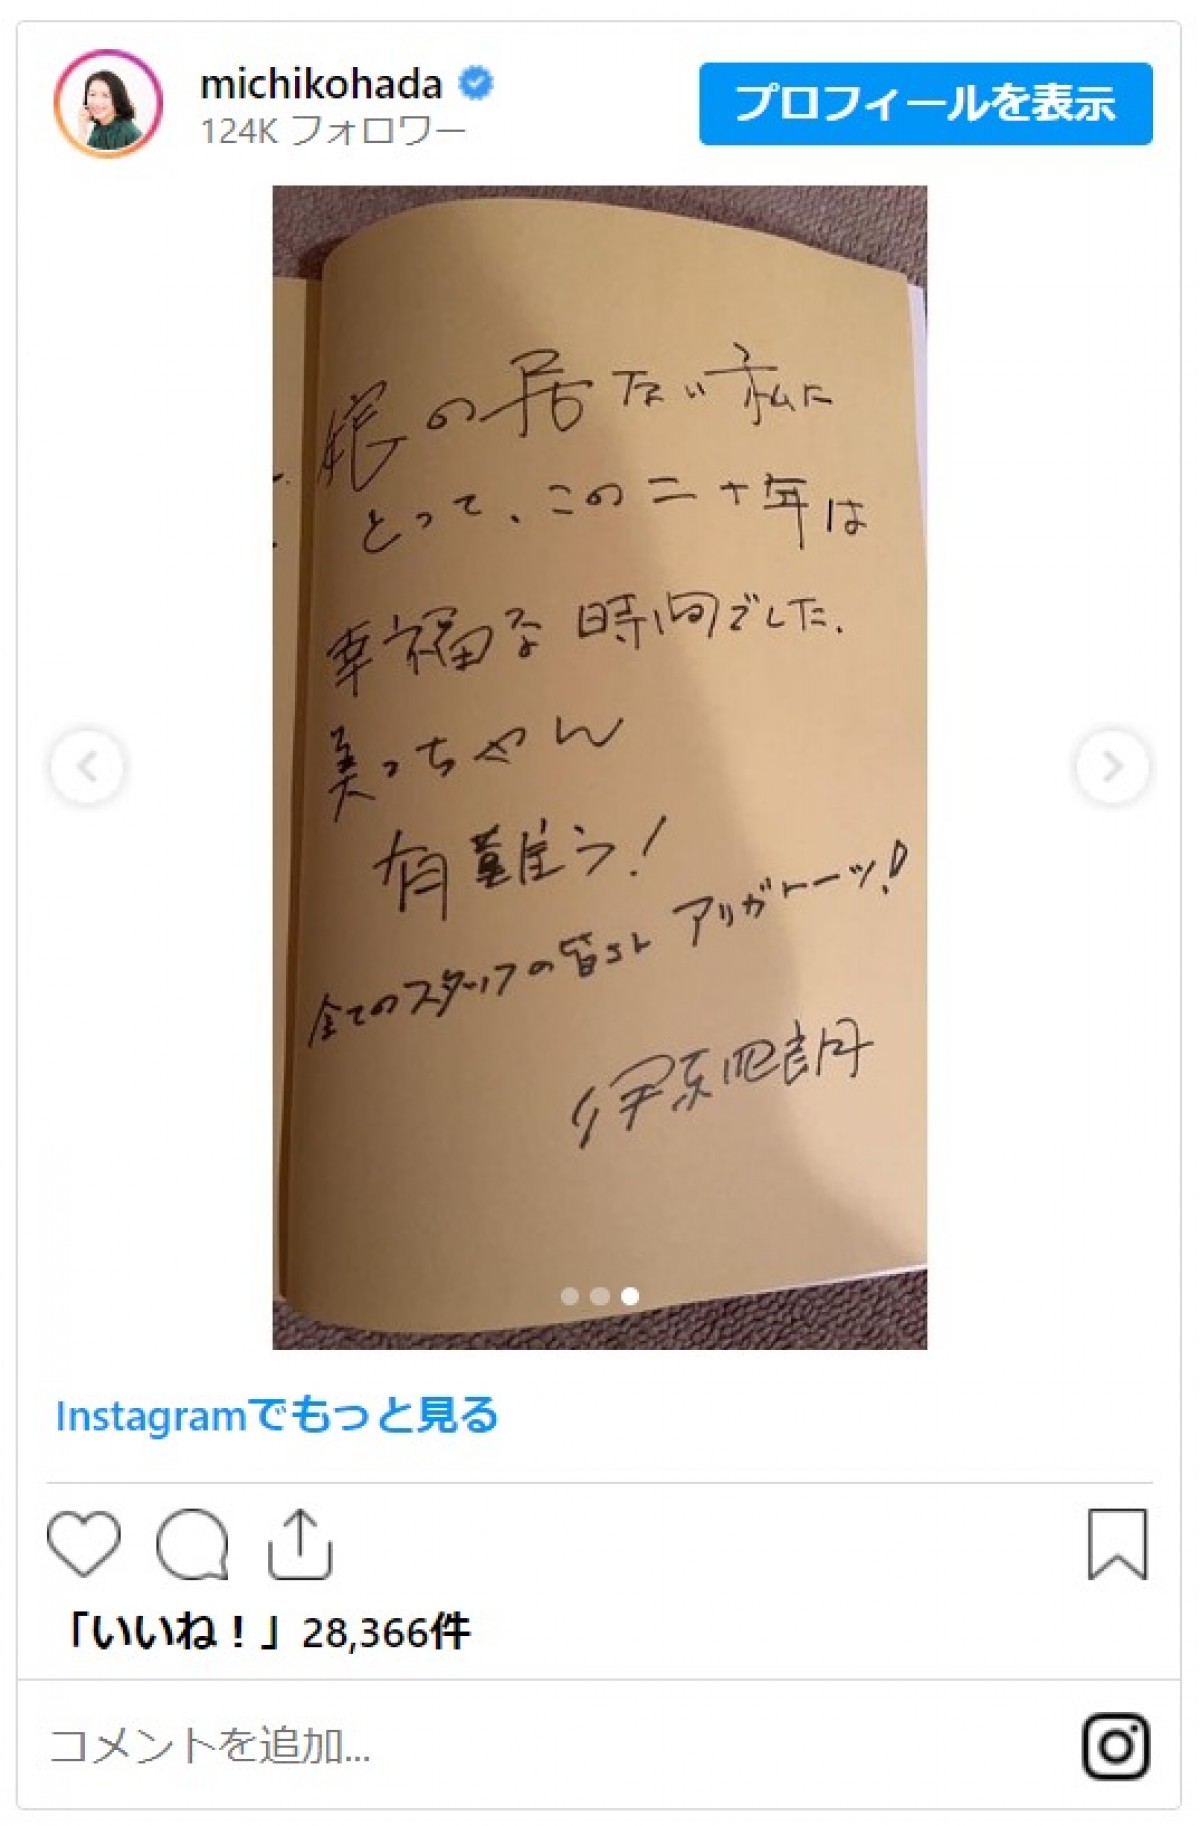 michikohada
124K フォロワー
プロフィールを表示
娘の居ない私に
とって、この二十年は
幸福な時間でした.
美っちゃん
有難う!
全てのスタッフの皆サト アリガトーッ!
伊東四朗
Instagramでもっと見る
「いいね！」28,366件
コメントを追加...